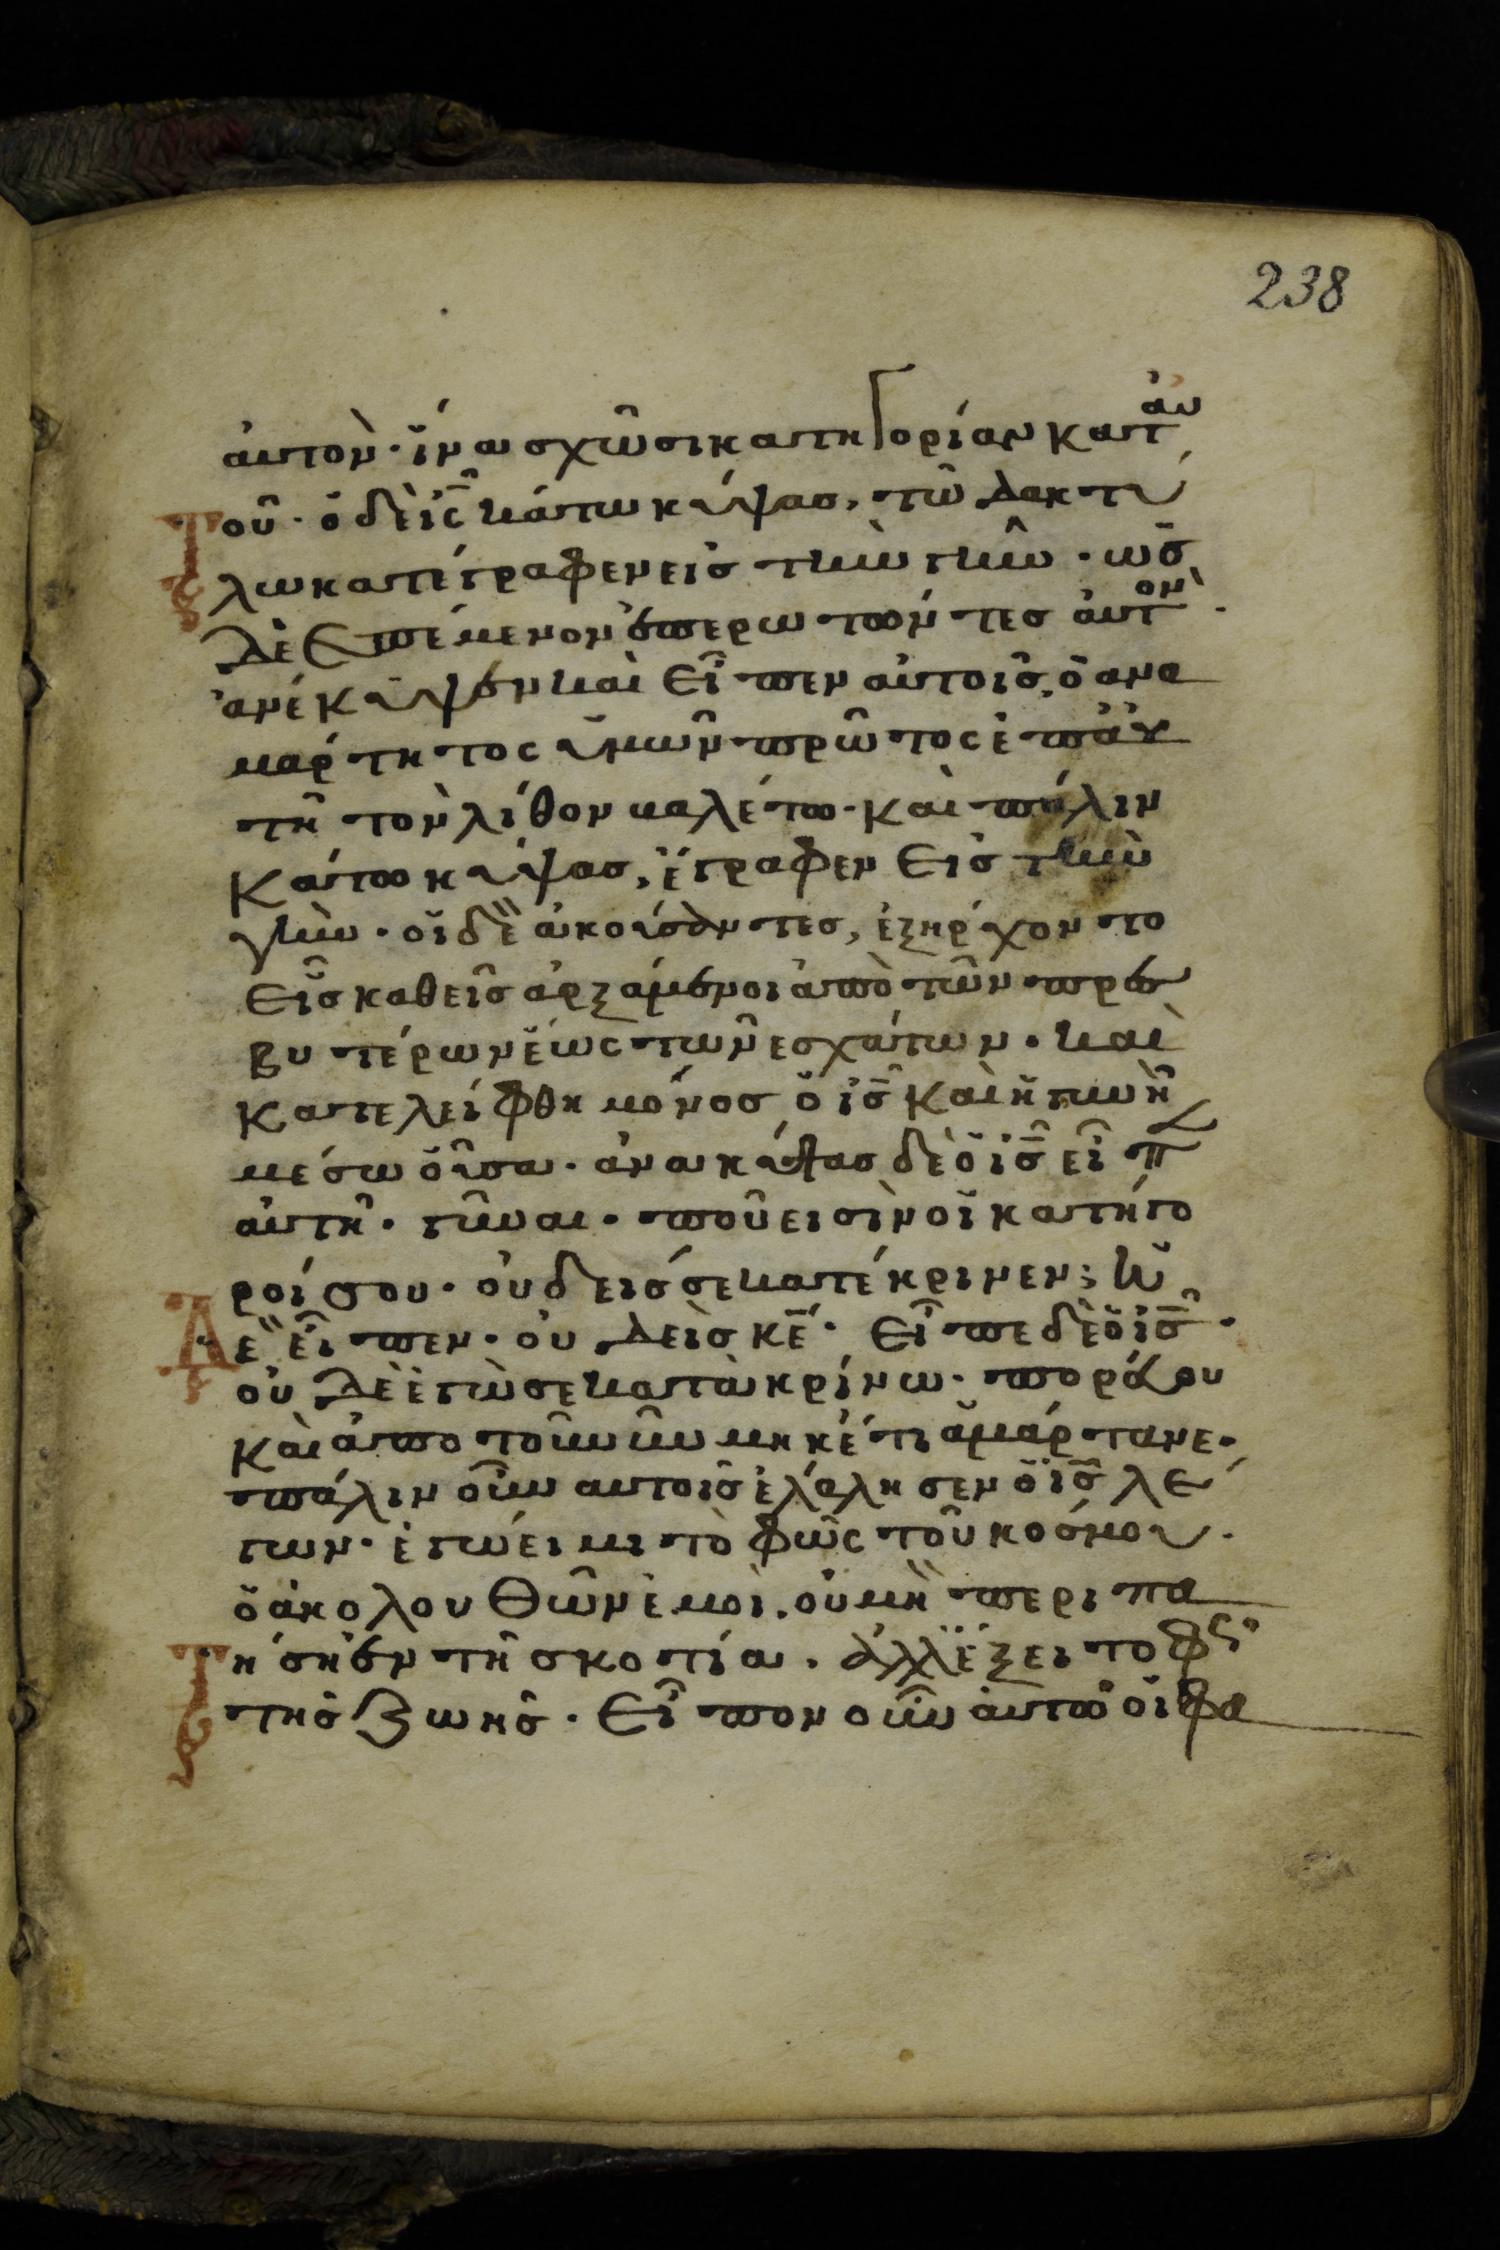 238
αὐτὸν· ἵνα σχῶσι κατηγορίαν κατ αὐ
τοῦ· ὁ δὲ ις κάτω κύψας, τῶ δακτύ
λω κατέγραφεν εἰς τὴν γῆν· ὡς
δὲ ἐπέμενον ἐπερωτῶντες αὐτὸν·
ἀνέκυψεν καὶ εἶπεν αὐτοῖς, ὁ ἀνα
μάρτητος ὑμῶν πρῶτος ἐπ αὐ
τῆ τὸν λίθον βαλέτω· καὶ πάλιν
κάτω κύψας, ἔγραφεν εἰς τὴν
γῆν· οἱ δὲ ἀκούσαντες, ἐξήρχοντο
εἷς καθεῖς ἀρξάμενοι ἀπὸ τῶν πρεσ
βυτέρων ἕως τῶν ἐσχάτων· καὶ
κατελείφθη μόνος ὁ ις καὶ ἡ γυνὴ ἐν
μέσω οὖσα· ἀνακύψας δὲ ὁ ις εἶπ
αὐτῆ· γύναι· ποῦ εἰσὶν οἱ κατήγο
ροί σου· οὐδείς σε κατέκρινεν; ἡ
δὲ εἶπεν· οὐδεὶς κε· εἶπε δὲ ὁ ις·
οὐδὲ ἐγώ σε κατακρίνω· πορεύου
καὶ ἀπὸ τοῦ νῦν μηκέτι ἁμάρτανε·
πάλιν οὖν αὐτοῖς ἐλάλησεν ὁ ις λέ
γων· ἐγώ εἰμι τὸ φῶς τοῦ κόσμου·
ὁ ἀκολουθῶν ἐμοὶ, οὐ μὴ περιπα
τήση ἐν τῆ σκοτία· ἀλλ ἕξει το φς
τῆς ζωῆς· εἶπον οὖν αὐτῶ οἱ φα